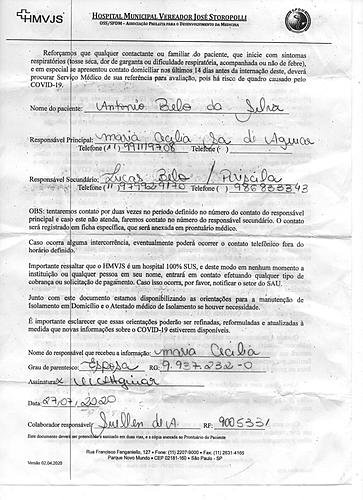 HMVJS
HOSPITAL MUNICIPAL VEREADOR JOSÉ STOROPOLLI
OSS/SPDM – ASSOCIAÇÃO PAULISTA PARA O DESENVOLVIMENTO DA MEDICINA
Reforçamos que qualquer contactante ou familiar do paciente, que inicie com sintomas
respiratórios (tosse seca, dor de garganta ou dificuldade respiratória, acompanhada ou não de febre),
e em especial se apresentou contato domiciliar nos últimos 14 dias antes da internação deste, deverá
procurar Serviço Médico de sua referência para avaliação, pois há risco de quadro causado pelo
COVID-19.
Nome do paciente: Antonio Belo da Silva
Responsável Principal: maria Cecilia Sa de Aguiar
Telefone (11) 991119708 Telefone ( )
Responsável Secundário: Lucas Belo / Priscila
Telefone (11) 979929170 Telefone ( ) 986833343
OBS: tentaremos contato por duas vezes no período definido no número do contato do responsável
principal e caso este não atenda, faremos contato no número do responsável secundário. O contato
será registrado em ficha específica, que será anexada em prontuário médico.
Caso ocorra alguma intercorrência, eventualmente poderá ocorrer o contato telefônico fora do
horário definido.
Importante ressaltar que o HMVJS é um hospital 100% SUS, e deste modo em nenhum momento a
instituição ou qualquer pessoa em seu nome, entrará em contato efetuando qualquer tipo de
cobrança ou solicitação de pagamento. Caso isso ocorra, por favor, notificar o setor do SAU.
Junto com este documento estamos disponibilizando as orientações para a manutenção de
Isolamento em Domicílio e o Atestado médico de Isolamento se houver necessidade.
É importante esclarecer que essas orientações poderão ser refinadas, reformuladas e atualizadas à
medida que novas informações sobre o COVID-19 estiverem disponíveis.
Nome do responsável que recebeu a informação: maria Cecilia
Grau de parentesco: Esposa RG: 9.937.232-0
Assinatura: x
Data: 27/07/2020
Colaborador responsável: Suellen de A. RF: 9005331
Este documento deverá ser preenchido e assinado em duas vias, e a cópia anexada ao Prontuário do Paciente
Rua Francisco Fanganiello, 127 • Fone: (11) 2207-9000 • Fax: (11) 2631-4165
Parque Novo Mundo • CEP 02181-160 • São Paulo - SP
Versão 02.04.2020